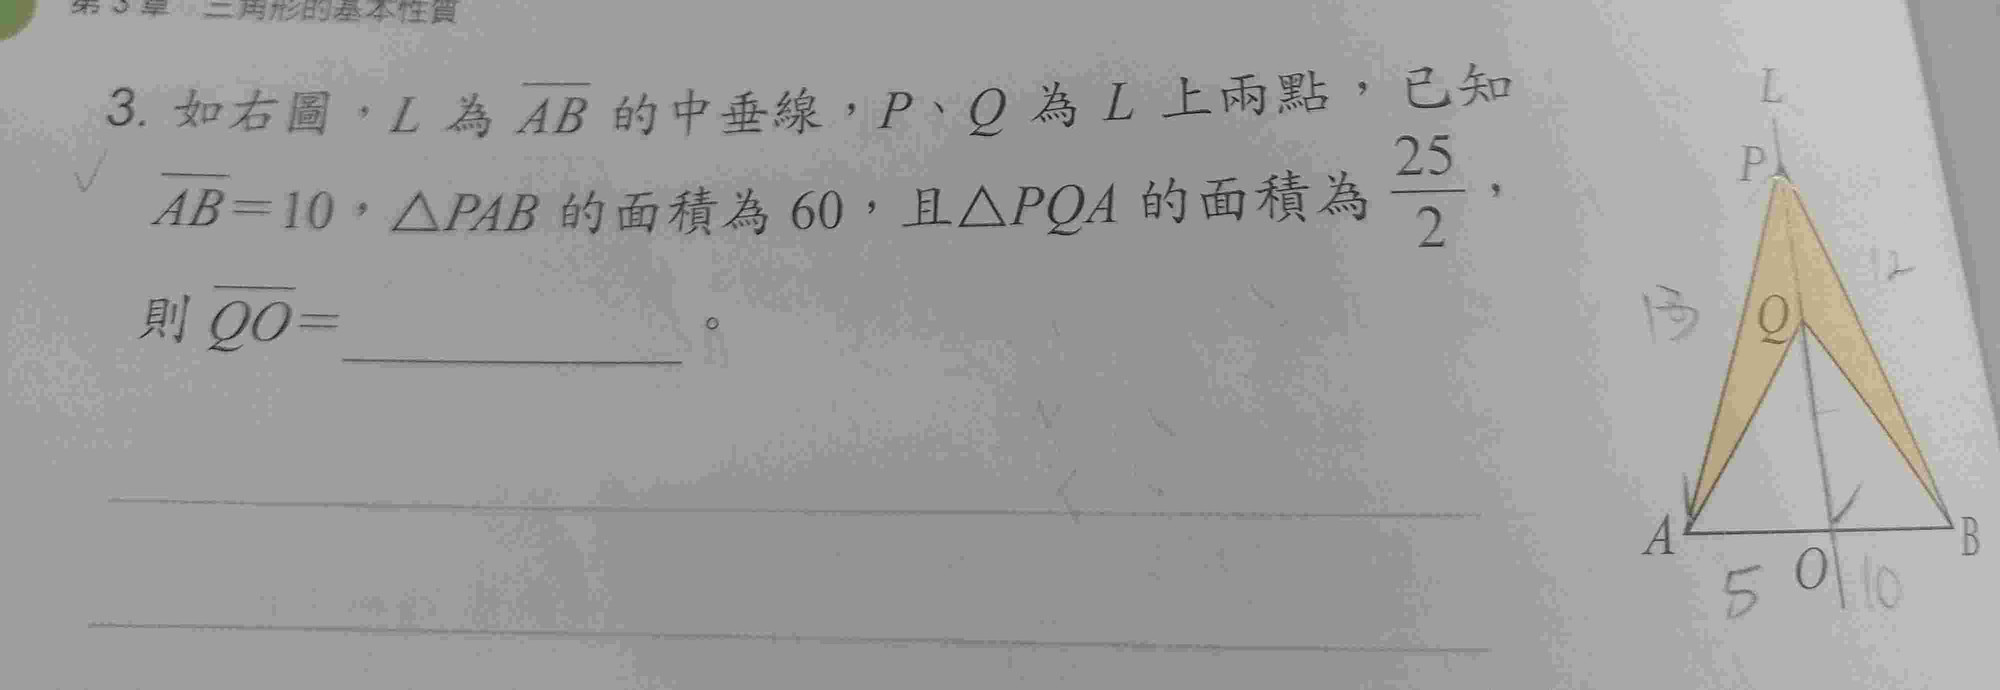 第3章 三角形的基本性質
3. 如右圖，L 為 AB 的中垂線，P、Q 為 L 上兩點，已知
AB=10，△PAB 的面積為 60，且△PQA 的面積為 25/2，
則 QO=＿＿＿＿。
L
P
12
13
Q
A
O
B
5
10